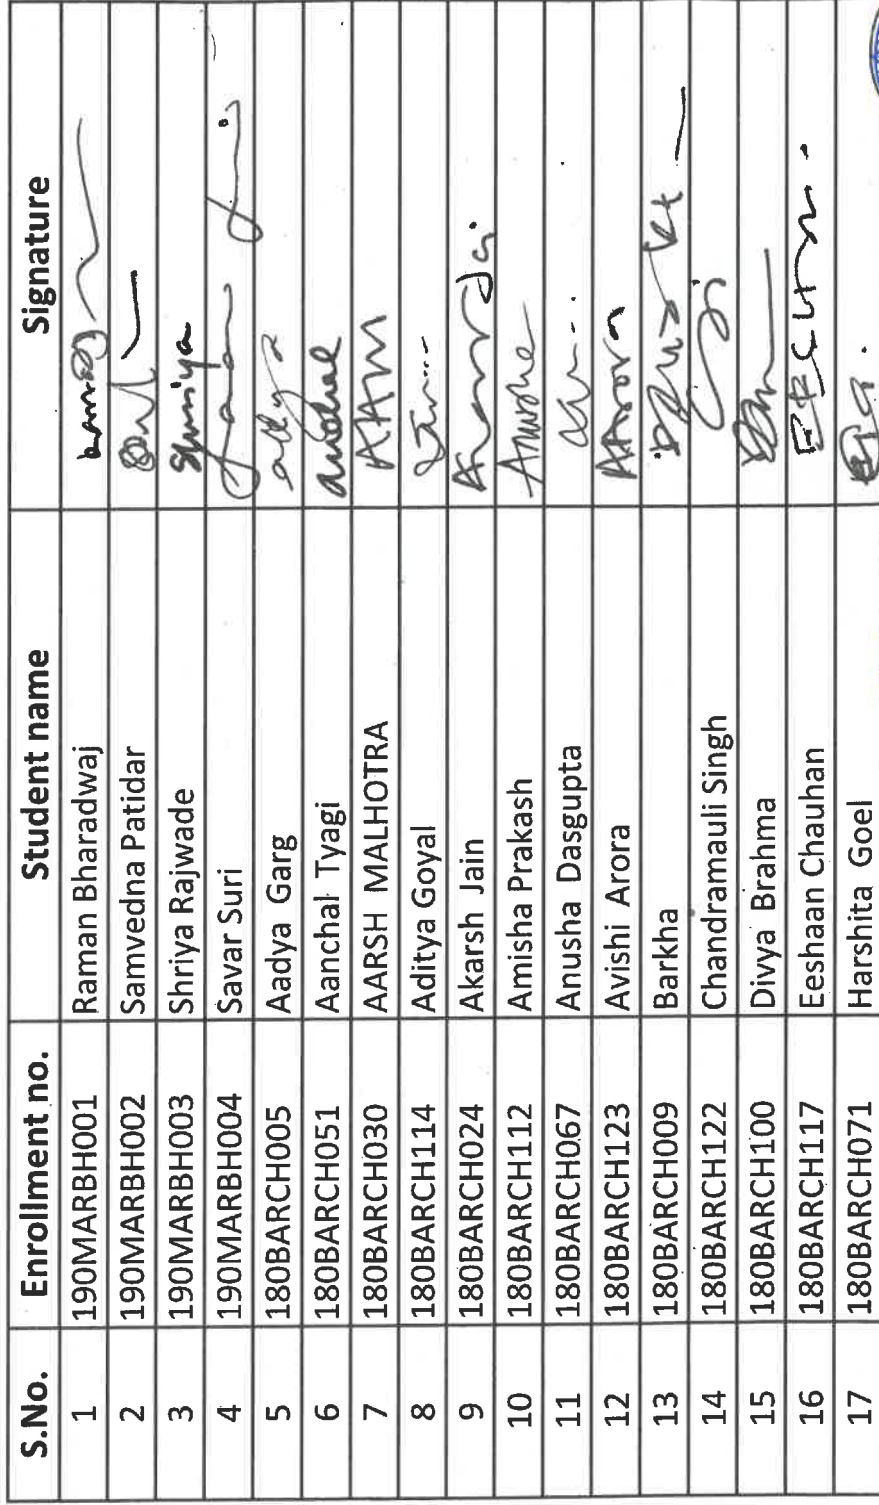 S.No. Enrollment no. Student name Signature
1 190MARBH001 Raman Bharadwaj
2 190MARBH002 Samvedna Patidar
3 190MARBH003 Shriya Rajwade Shriya
4 190MARBH004 Savar Suri
5 180BARCH005 Aadya Garg
6 180BARCH051 Aanchal Tyagi
7 180BARCH030 AARSH MALHOTRA
8 180BARCH114 Aditya Goyal
9 180BARCH024 Akarsh Jain
10 180BARCH112 Amisha Prakash
11 180BARCH067 Anusha Dasgupta
12 180BARCH123 Avishi Arora
13 180BARCH009 Barkha
14 180BARCH122 Chandramauli Singh
15 180BARCH100 Divya Brahma
16 180BARCH117 Eeshaan Chauhan
17 180BARCH071 Harshita Goel